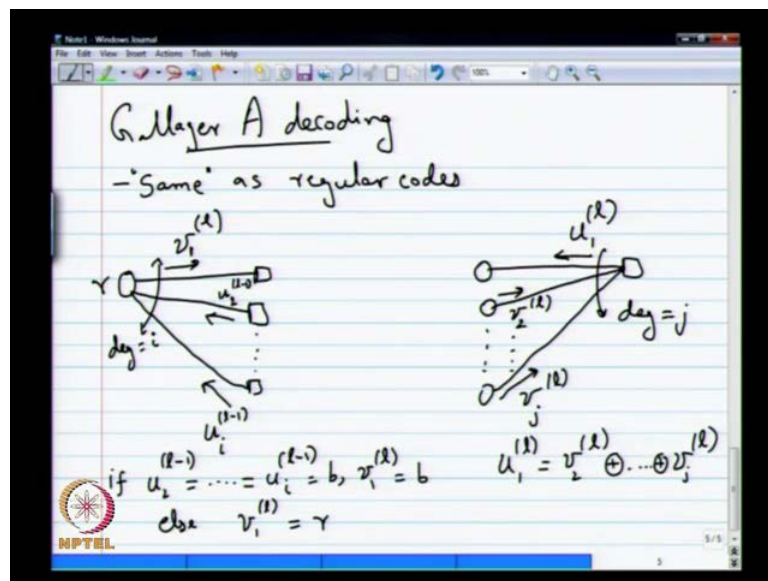 Note1 - Windows Journal
File Edit View Insert Actions Tools Help
100%
Gallager A decoding
- "Same" as regular codes
v₁^(l)
r
u₂^(l-1)
deg = i
u_i^(l-1)
u₁^(l)
v₂^(l)
deg = j
v_j^(l)
if u₂^(l-1) = ..... = u_i^(l-1) = b, v₁^(l) = b
else v₁^(l) = r
u₁^(l) = v₂^(l) ⊕ .... ⊕ v_j^(l)
NPTEL
5/5
5